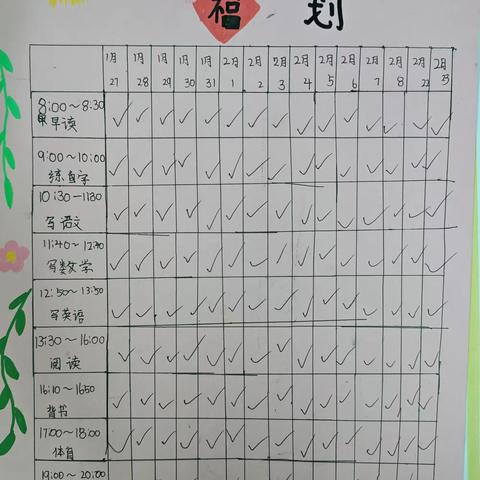 福 划
1月27 1月28 1月29 1月30 1月31 2月1 2月2 2月3 2月4 2月5 2月6 2月7 2月8 2月22 2月23
8:00~8:30
早读
9:00~10:00
练直字
10:30-1130
写语文
11:40~1240
写数学
12:50~13:50
写英语
13:30~16:00
阅读
16:10~1650
背书
17:00~18:00
体育
19:00~20:00